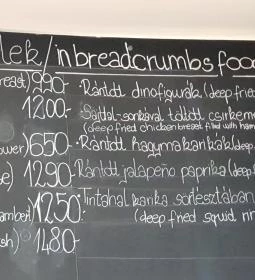 lek/in breadcrumbs food
reast) 990.- Rántott dinofigurák (deep fried
1200.- Sajttal-sonkával töltött csirkeme
(deep fried chicken breast filled with ham
ower) 650.- Rántott hagymakarikák (deep
e) 1290.- Rántott jalapeño paprika (deep
ambert) 1250.- Tintahal karika sörtésztában
(deep fried squid rin
sh) 1480.-